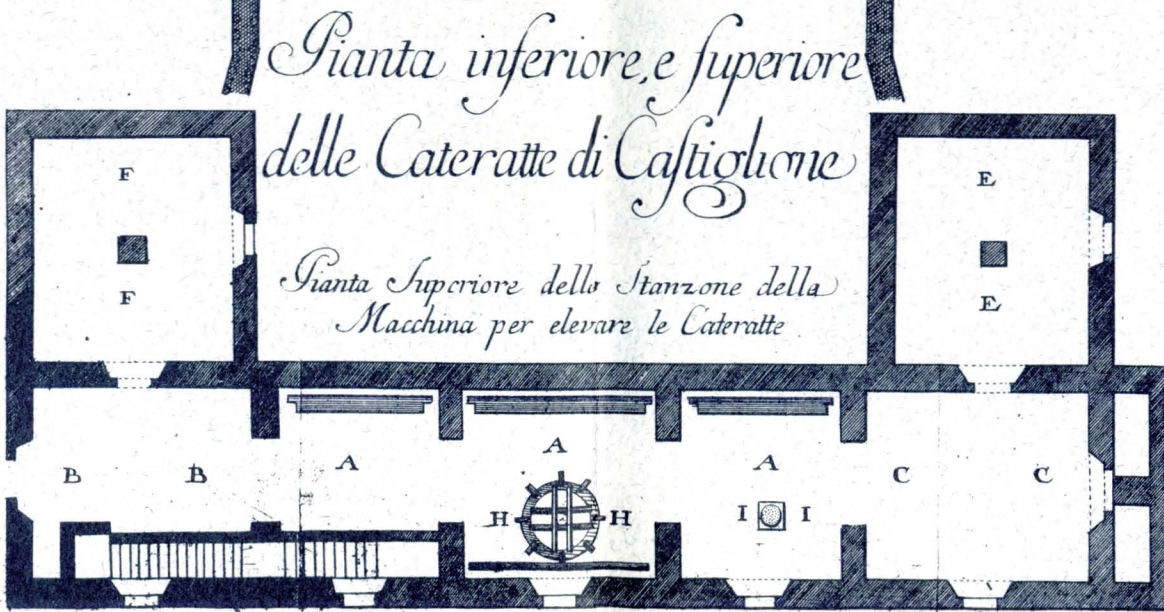 Pianta inferiore, e ſuperiore
delle Cateratte di Caſtiglione
Pianta Superiore dello Stanzone della
Macchina per elevare le Cateratte
F
E
F
E
A
B B A A C C
H H I I